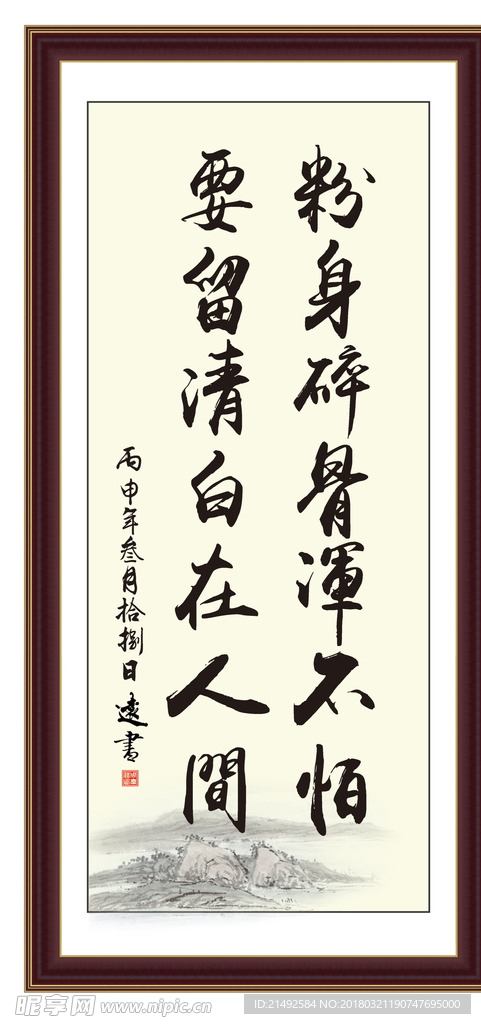 粉身碎骨渾不怕
要留清白在人間
丙申年叁月拾捌日 遠書
昵享网 www.nipic.cn
ID:21492584 NO:20180321190747695000